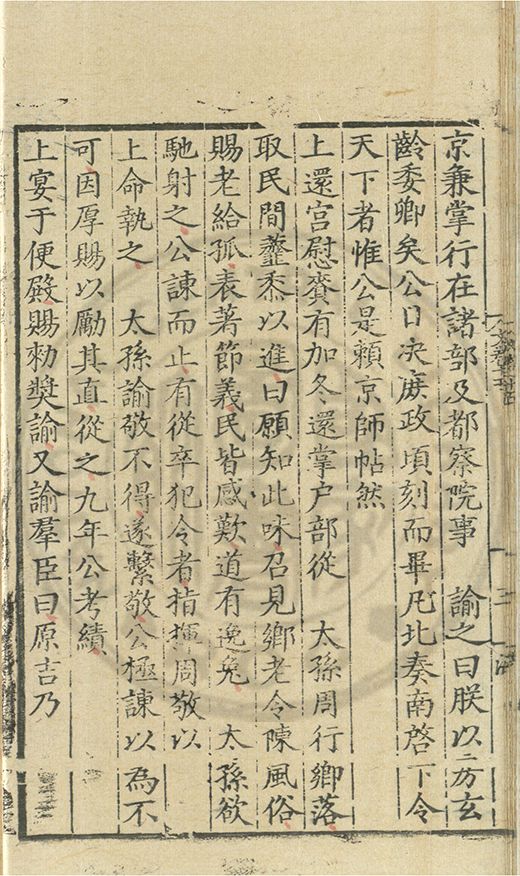 京兼掌行在諸部及都察院事　諭之曰朕以二方玄
齡委卿矣公口决庻政頃刻而畢凢北奏南啓下令
天下者惟公是頼京師帖然
上還宫慰賚有加冬還掌户部從　太孫周行鄉落
取民間虀黍以進曰願知此味召見鄉老令陳風俗
賜老給孤表著節義民皆感歎道有逸兎　太孫欲
馳射之公諌而止有從卒犯令者指揮周敬以
上命執之　太孫諭敬不得遂繫敬公極諌以為不
可因厚賜以勵其直從之九年公考績
上宴于便殿賜勑奬諭又諭羣臣曰原吉乃